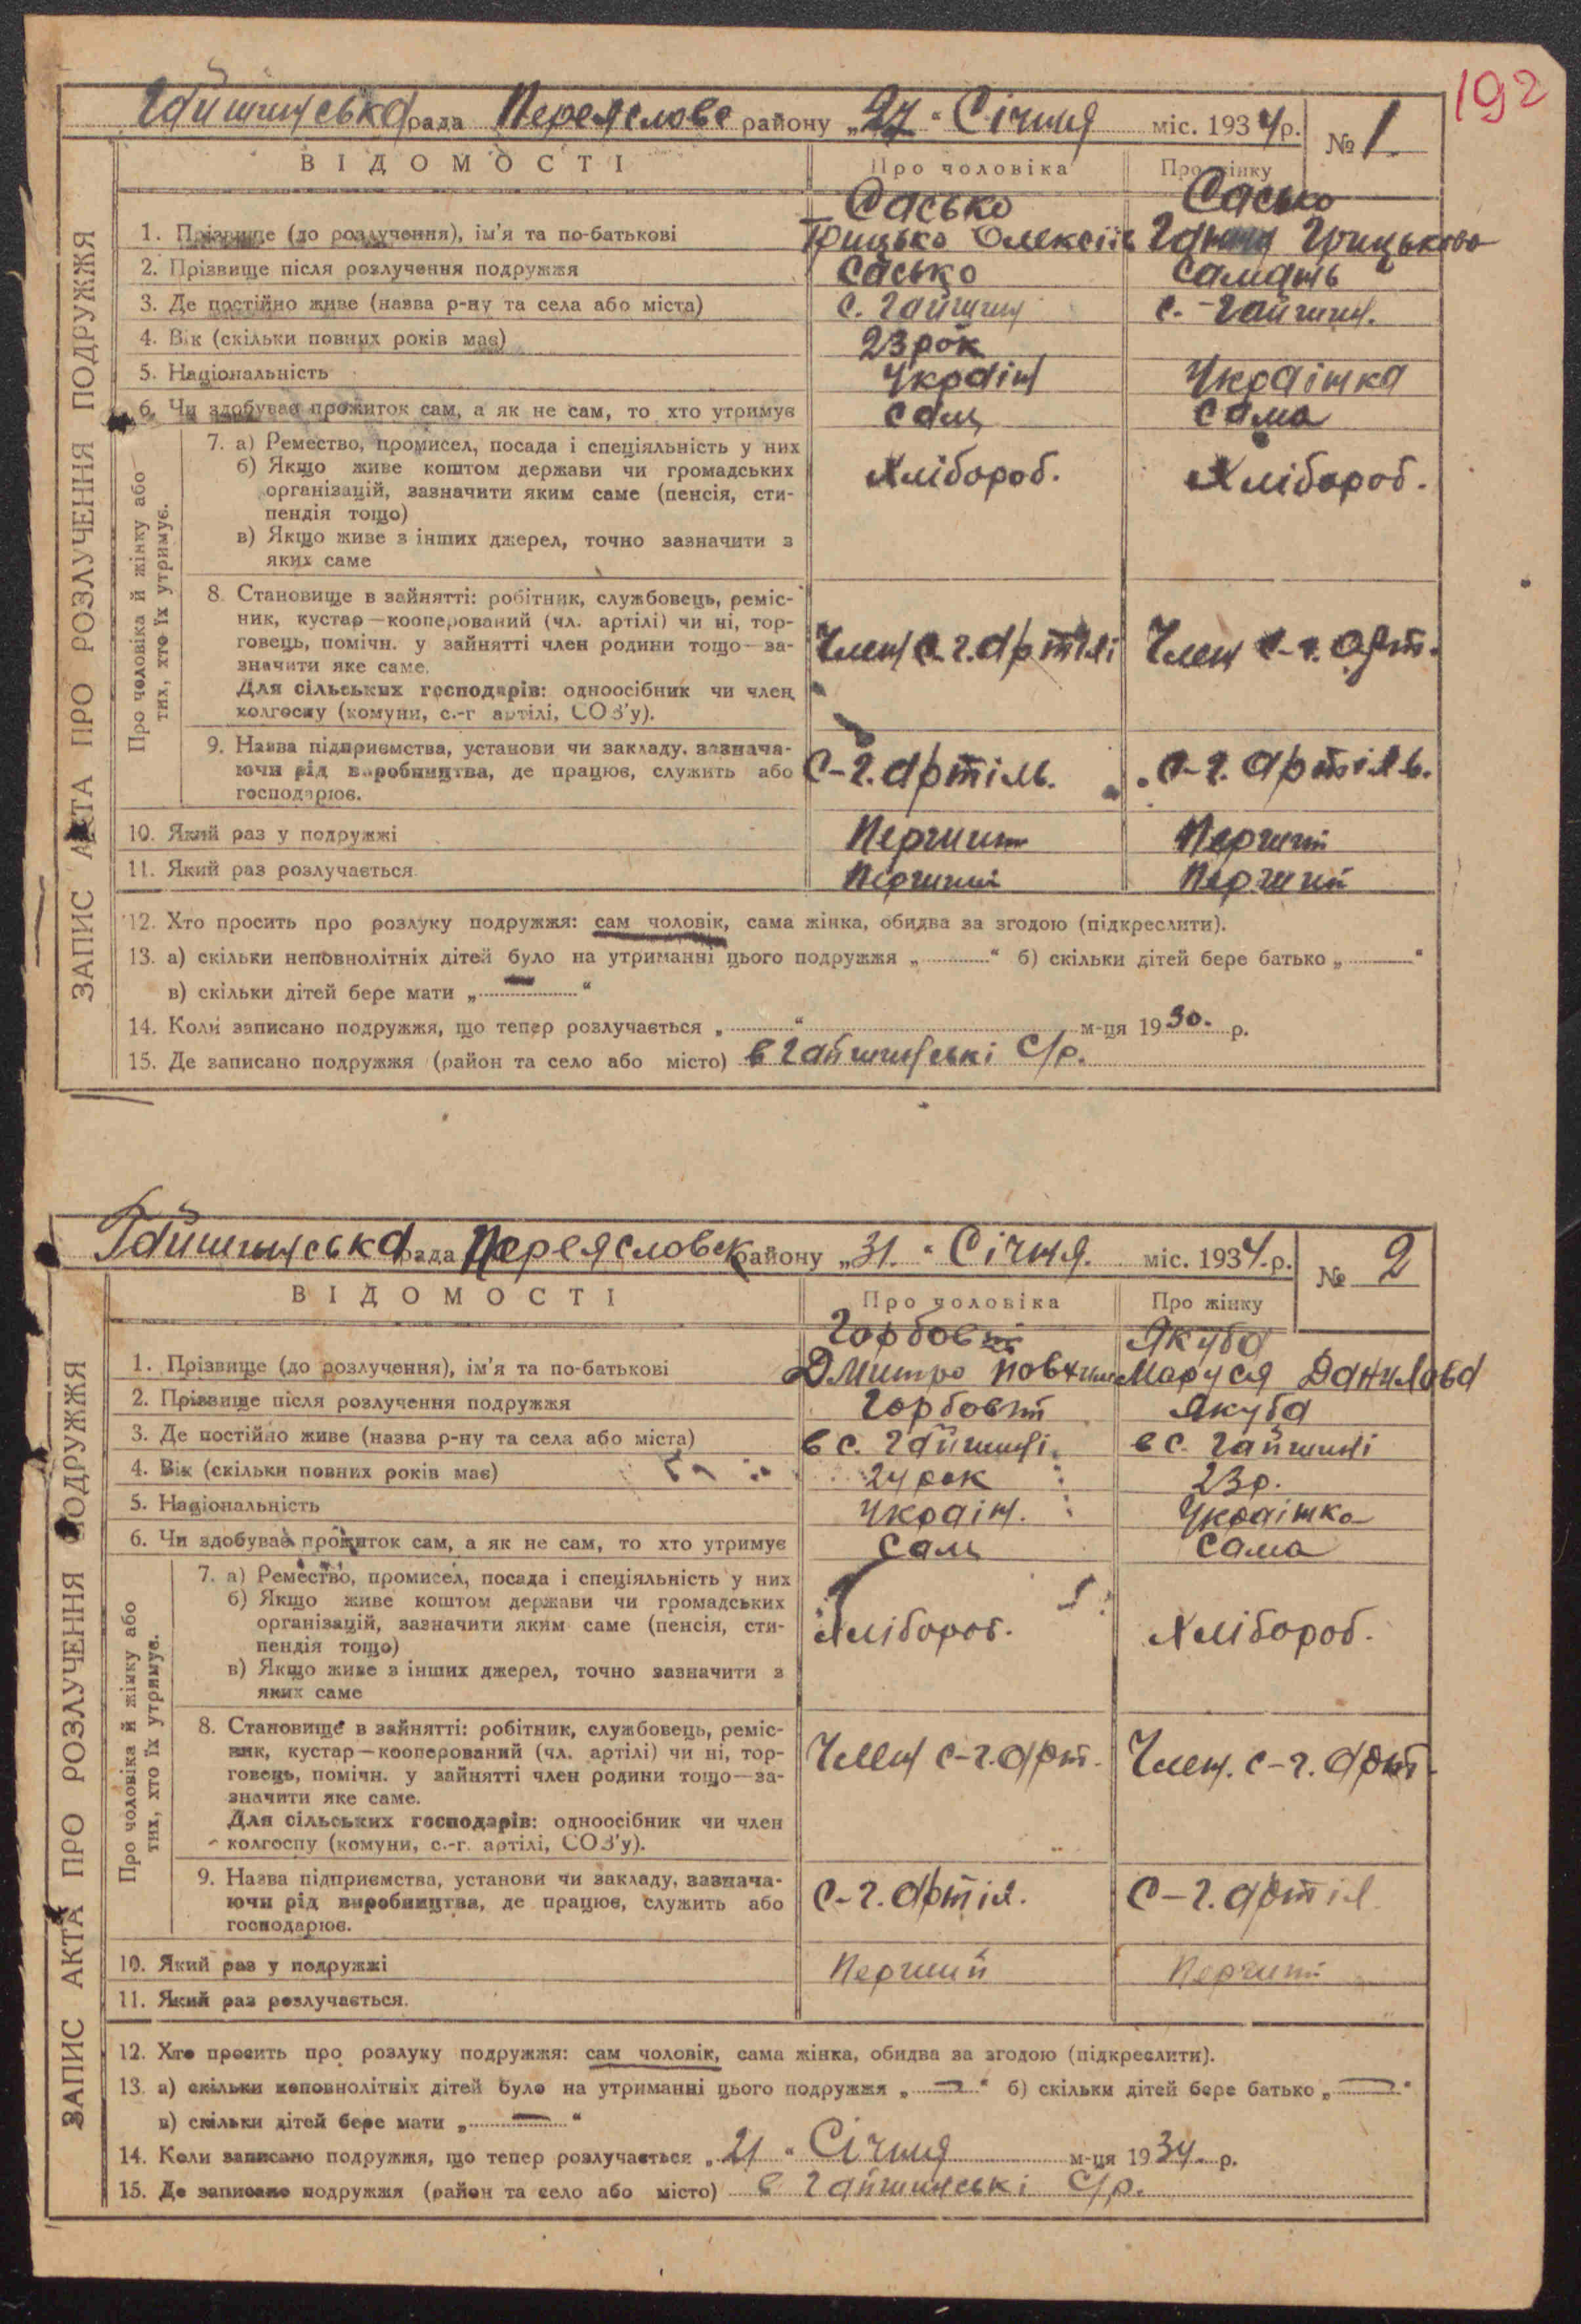 192
Гайшинська рада Переяслове району „27“ Січня міс. 1934 р. № 1
ВІДОМОСТІ Про чоловіка Про жінку
Сасько Сасько
1. Прізвище (до розлучення), ім'я та по-батькові Грицько Олексіїв Ганна Грицькова
2. Прізвище після розлучення подружжя Сасько
3. Де постійно живе (назва р-ну та села або міста) с. Гайшин с. Гайшин.
4. Вік (скільки повних років має) 23 рок
5. Національність Україн Українка
6. Чи здобуває прожиток сам, а як не сам, то хто утримує сам сама
7. а) Ремество, промисел, посада і спеціяльність у них
б) Якщо живе коштом держави чи громадських Хлібороб. Хлібороб.
організацій, зазначити яким саме (пенсія, сти-
пендія тощо)
в) Якщо живе з інших джерел, точно зазначити з
яких саме
8. Становище в зайнятті: робітник, службовець, реміс-
ник, кустар—кооперований (чл. артілі) чи ні, тор-
говець, помічн. у зайнятті член родини тощо—за- Член с.г. артілі Член с-г. арт.
значити яке саме.
Для сільських господарів: одноосібник чи член
колгоспу (комуни, с.-г артілі, СОЗ'у).
9. Назва підприємства, установи чи закладу, зазнача-
ючи рід виробництва, де працює, служить або С-г. артіль. С-г. артіль.
господарює.
10. Який раз у подружжі Перший Перший
11. Який раз розлучається Перший Перший
12. Хто просить про розлуку подружжя: сам чоловік, сама жінка, обидва за згодою (підкреслити).
13. а) скільки неповнолітніх дітей було на утриманні цього подружжя „ “ б) скільки дітей бере батько „ “
в) скільки дітей бере мати „—“
14. Коли записано подружжя, що тепер розлучається „ “ м-ця 1930. р.
15. Де записано подружжя (район та село або місто) в Гайшинські С/р.
ЗАПИС АКТА ПРО РОЗЛУЧЕННЯ ПОДРУЖЖЯ
Про чоловіка й жінку або
тих, хто їх утримує.
Гайшинська рада Переясловск району „31.“ Січня. міс. 1934. р. № 2
ВІДОМОСТІ Про чоловіка Про жінку
Якуба
1. Прізвище (до розлучення), ім'я та по-батькові Дмитро Маруся Данилова
2. Прізвище після розлучення подружжя Якуба
3. Де постійно живе (назва р-ну та села або міста) в с. Гайшині. в с. Гайшині
4. Вік (скільки повних років має) 24 рок 23 р.
5. Національність Україн. Українка
6. Чи здобуває прожиток сам, а як не сам, то хто утримує Сам Сама
7. а) Ремество, промисел, посада і спеціяльність у них
б) Якщо живе коштом держави чи громадських
організацій, зазначити яким саме (пенсія, сти- Хлібороб. Хлібороб.
пендія тощо)
в) Якщо живе з інших джерел, точно зазначити з
яких саме
8. Становище в зайнятті: робітник, службовець, реміс-
ник, кустар—кооперований (чл. артілі) чи ні, тор- Член с-г. арт. Член. с-г. арт.
говець, помічн. у зайнятті член родини тощо—за-
значити яке саме.
Для сільських господарів: одноосібник чи член
колгоспу (комуни, с.-г. артілі, СОЗ'у).
9. Назва підприємства, установи чи закладу, зазнача-
ючи рід виробництва, де працює, служить або С-г. артіл. С-г. артіл
господарює.
10. Який раз у подружжі Перший Перший
11. Який раз розлучається.
12. Хто просить про розлуку подружжя: сам чоловік, сама жінка, обидва за згодою (підкреслити).
13. а) скільки неповнолітніх дітей було на утриманні цього подружжя „—“ б) скільки дітей бере батько „—“
в) скільки дітей бере мати „—“
14. Коли записано подружжя, що тепер розлучається „21“ Січня м-ця 1934. р.
15. Де записано подружжя (район та село або місто) в Гайшинські С/р.
ЗАПИС АКТА ПРО РОЗЛУЧЕННЯ ПОДРУЖЖЯ
Про чоловіка й жінку або
тих, хто їх утримує.